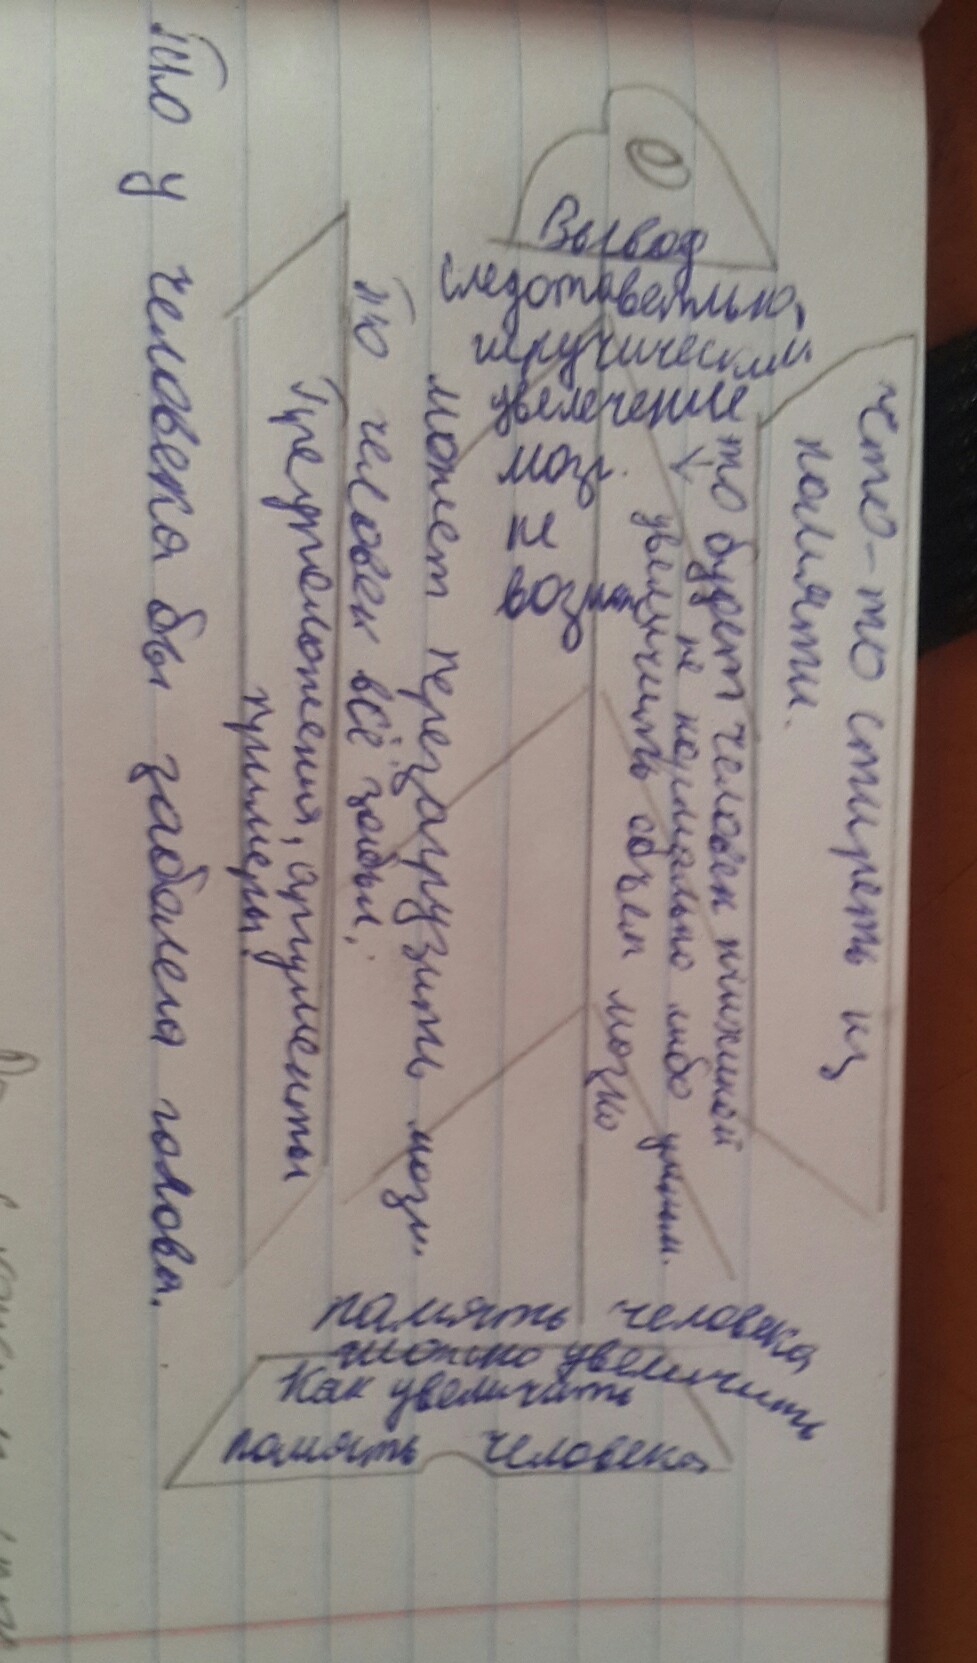 Вывод
следотаветльно,
увелечение
мозг.
не
что-то стиреть из
памяти.
то будет человек книжной
не нормально либо умным.
увеличить объем мозга
может перезагрузить мозг.
то человек всё забыл,
Предположения, аргументы
примеры!
То у человека бы заболела голова.
память человека
можно увеличить
Как увеличать
память человека